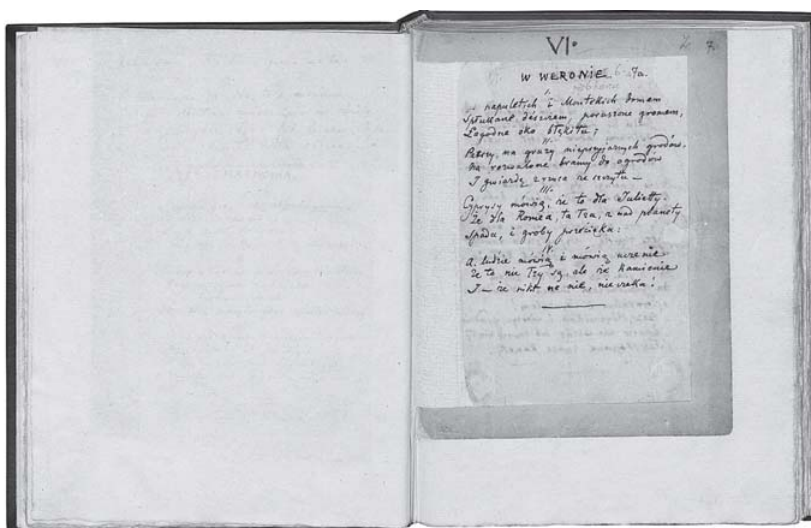 VI.
7.
W WERONIE. 7a.
I.
Kapuletich i Montekich domem
Spłukane deszczem, poruszone gromem,
Łagodne oko błękitu;
II.
Patrzy, na gruzy nieprzyjaznych grodów,
Na rozwalone bramy do ogrodów
I gwiazdę zrzuca ze szczytu –
III.
Cyprysy mówią, że to dla Julietty.
Że dla Romea, ta łza, z nad planety
Spada, i groby przecieka:
IV.
A ludzie mówią i mówią uczenie
Że to, nie łzy są, ale że kamienie
I – że nikt na nie, nie czeka!